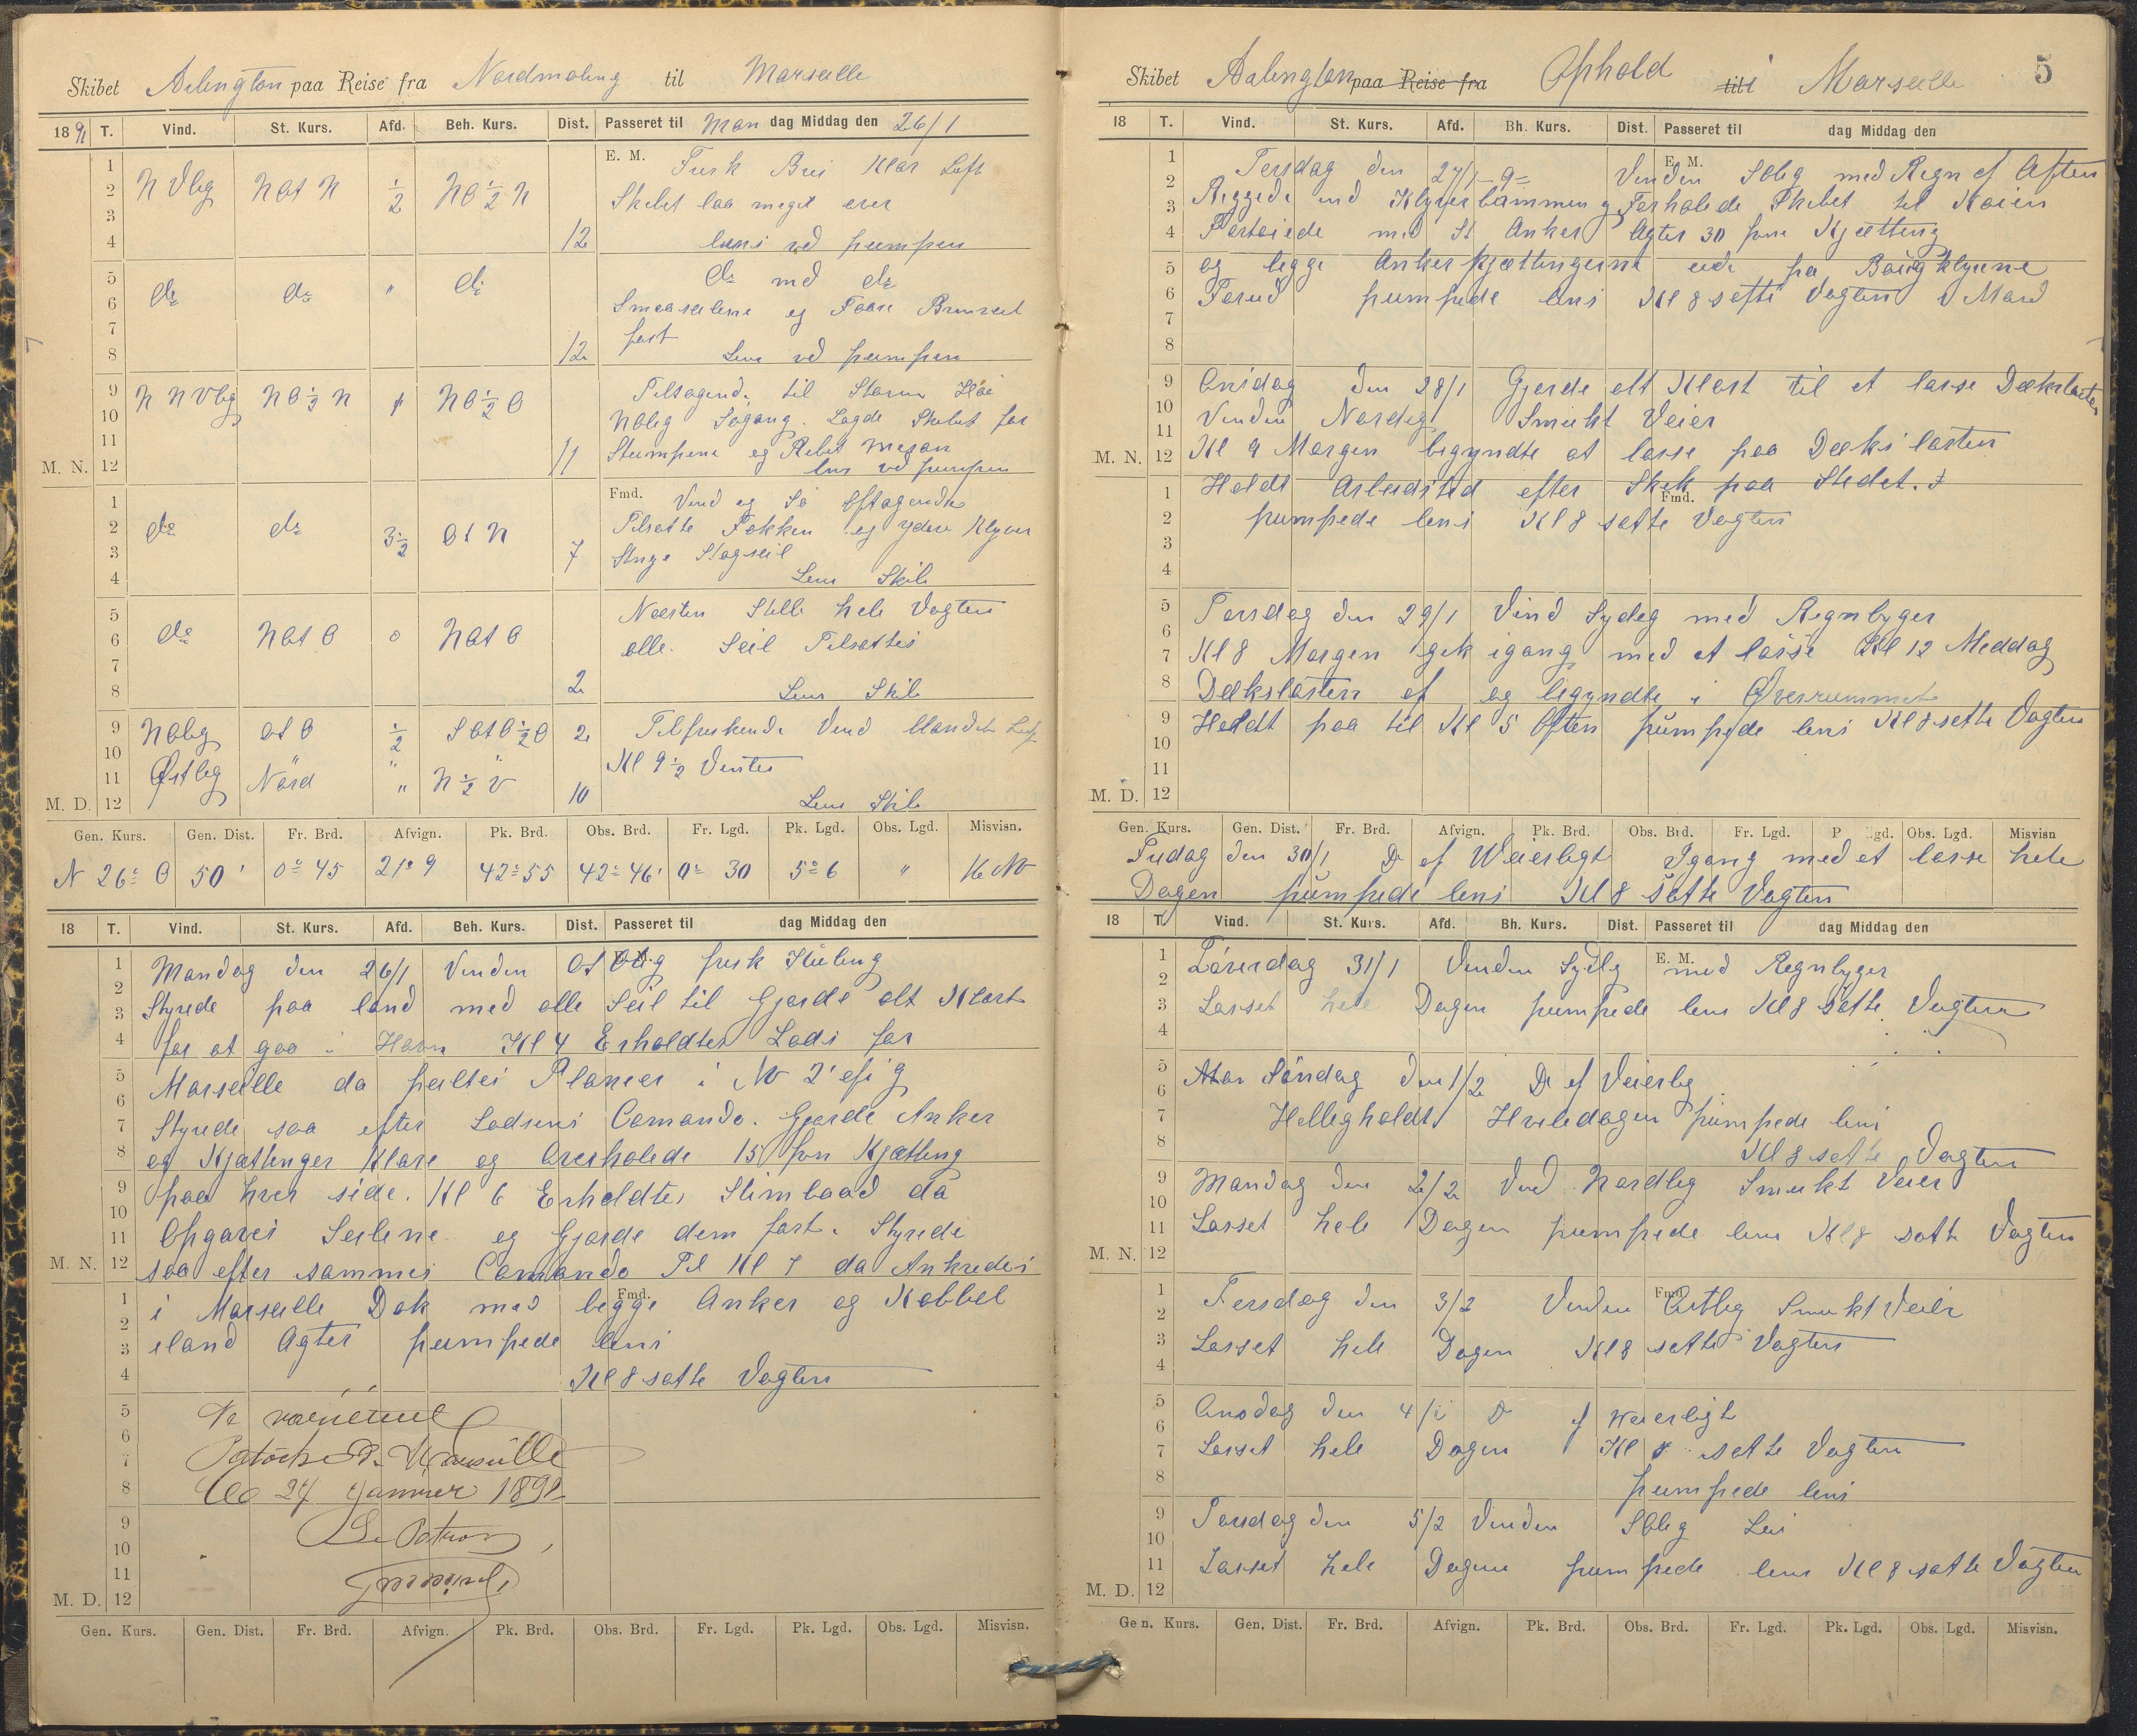 Skibet Arlington paa Reise fra Nordmaling til Marseille
1891 T. Vind. St. Kurs. Afd. Beh. Kurs. Dist. Passeret til Man dag Middag den 26/1
E. M.
1 2 3 4 N Vlig NOt N ½ NO ½ N 12
Frisk Bris Klar Luft
Skibet laa meget over
lens ved pumpen
5 6 7 8 do do " do 12
do med do
Smaaseilene og Faare Bramseil
fast
Lens ved pumpen
9 10 11 12 M. N. N N Vlig NO ½ N NO ½ O 11
Tiltagende til Storm Høi
NOlig Søgang. Lagde Skibet for
Stumpene og Rebet Mesan
lens ved pumpen
Fmd.
1 2 3 4 do do 3½ Ot N 7
Vind og Sø Aftagende
Tilsatte Fokken og ydre Klyver
Stnge Stagseil
Lens Skib
5 6 7 8 do NOt O 0 NOt O 2
Næsten Stille hele Vagten
alle Seil Tilsattes
Lens Skib
9 10 11 12 M. D. NOlig Ot O ½ SOt O ½ O 2
Østlig Nord " N ½ V 10
Tilfriskende Vind Klandet Luft
Kl 9½ Venter
Lens Skib
Gen. Kurs. Gen. Dist. Fr. Brd. Afvign. Pk. Brd. Obs. Brd. Fr. Lgd. Pk. Lgd. Obs. Lgd. Misvisn.
N 26° O 50' 0° 45 21'9 42° 55 42° 46' 0° 30 5° 6 " 16 NV
18 T. Vind. St. Kurs. Afd. Beh. Kurs. Dist. Passeret til dag Middag den
Mandag den 26/1 Vinden Ot Olig frisk Kuling
Styrede paa land med alle Seil til Gjorde alt Klart
for at gaa i Havn Kl 4 Erholdtes Lods for
Marseille da peiltes Planier i NV 2'
Styrede saa efter Lodsens Comando. Gjorde Anker
og Kjættinger Klare og Overholede 15 fvn Kjætting
paa hver side. Kl 6 Erholdtes Stimbaad da
Opgaves Seilene og Gjorde dem fast. Styrede
saa efter sammes Comando Til Kl 7 da Ankredes
i Marseille Dok med begge Anker og Kabbel
iland Agter pumpede lens
Kl 8 satte Vagten
Marseille
27 Janvier 1891
Le Patron
Gen. Kurs. Gen. Dist. Fr. Brd. Afvign. Pk. Brd. Obs. Brd. Fr. Lgd. Pk. Lgd. Obs. Lgd. Misvisn.
5
Skibet Aalington paa Reise fra Ophold til i Marseille
18 T. Vind. St. Kurs. Afd. Bh. Kurs. Dist. Passeret til dag Middag den
E. M.
Tersdag den 27/1 91 Vinden SOlig med Regn af Aften
Riggede ind Klyverbammen g Forholede Skibet til Kaien
Fortøiede med St Anker Agter 30 fvn Kjætting
og begge Ankerkjættingerne ude fra Baugklysene
Forud pumpede lens Kl 8 satte Vagten 1 Mand
Onsdag den 28/1 Gjorde alt Klart til at losse Dækslasten
Vinden Nordlig Smukt Veier
Kl 9 Morgen begyndte at losse paa Dækslasten
Holdt Arbeidstid efter Skik paa Stedet.
Fmd.
pumpede lens Kl 8 satte Vagten
Torsdag den 29/1 Vind Sydlig med Regnbyger
Kl 8 Morgen gik igang med at losse Kl 12 Meddag
Dækslasten af og begyndte i Overrummet
Holdt paa til Kl 5 Aften pumpede lens Kl 8 satte Vagten
Gen. Kurs. Gen. Dist. Fr. Brd. Afvign. Pk. Brd. Obs. Brd. Fr. Lgd. P gd. Obs. Lgd. Misvisn
Fredag den 30/1 Do af Weierligt Igang med at losse hele
Dagen pumpede lens Kl 8 satte Vagten
18 T. Vind. St. Kurs. Afd. Bh. Kurs. Dist. Passeret til dag Middag den
E. M.
Lørerdag 31/1 Vinden Sydlig med Regnbyger
Losset hele Dagen pumpede lens Kl 8 satte Vagten
Man Søndag den 1/2 Do af Veierlig
Helligholdt Hviledagen pumpede lens
Kl 8 satte Vagten
Mandag den 2/2 Vind Nordlig Smukt Veier
Losset hele Dagen pumpede lens Kl 8 satte Vagten
Fmd.
Tersdag den 3/2 Vinden Østlig Smukt Veier
Losset hele Dagen Kl 8 satte Vagten
Onsdag den 4/2 Do af Weierligt
Losset hele Dagen Kl 8 satte Vagten
pumpede lens
Torsdag den 5/2 Vinden SOlig
Losset hele Dagen pumpede lens Kl 8 satte Vagten
Gen. Kurs. Gen. Dist. Fr. Brd. Afvign. Pk. Brd. Obs. Brd. Fr. Lgd. Pk. Lgd. Obs. Lgd. Misvisn.